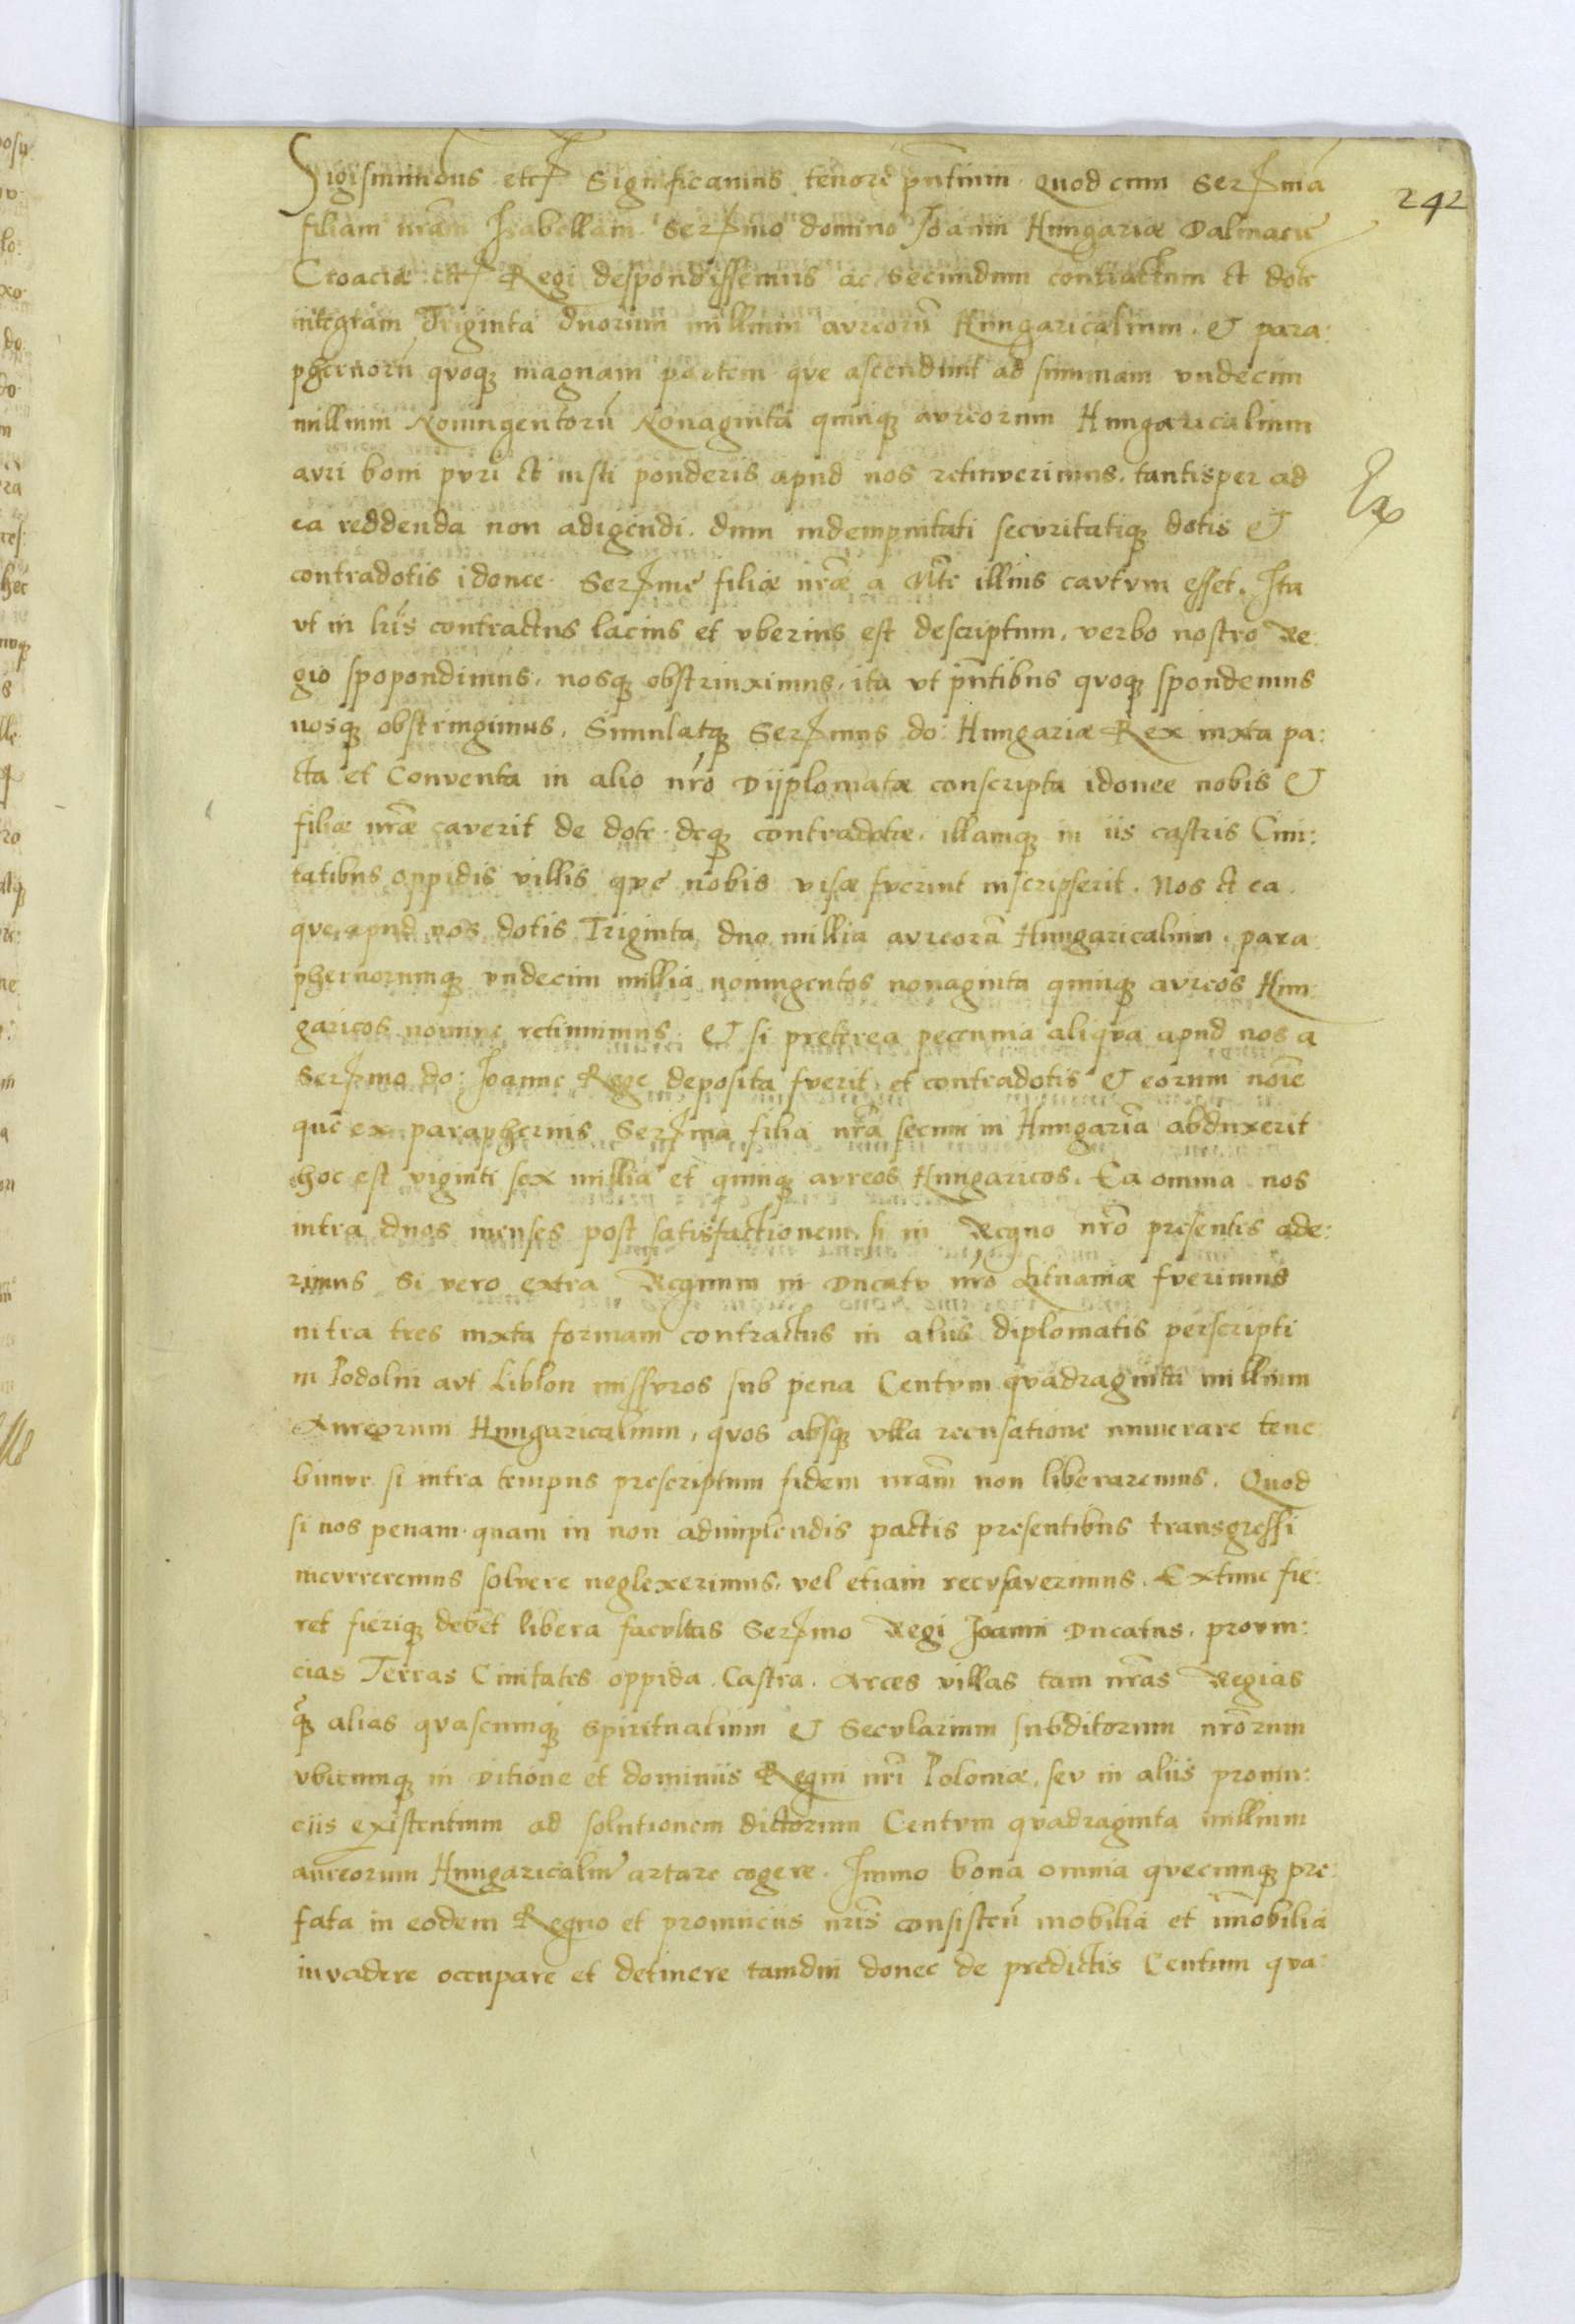 Sigismundus etc Significamus tenore pn̄tium Quod cum Ser̄ma
242
filiam nrām Isabellam Ser̄mo domino Joanni Hungariæ Dalmacie
Croaciæ etc Regi despondissemus ac Secundum contractum et dote
integram Triginta duorum millium avreorū Hungaricalium & para:
phernorū qvoqꝫ magnam partem qve ascendunt ad summam vndecim
millium Noningentorū Nonaginta quinqꝫ avreorum Hungaricalium
avri boni pvri et iusti ponderis apud nos retinverimus. tantisper ad
ea reddenda non adigendi. dum indempnitati secvritatiqꝫ dotis &
contradotis idonee Ser̄me filiæ nrǣ a Mt̄e illius cavtvm esset. Ita
vt in lrīs contractus lacius et vberius est descriptum. verbo nostro Re:
gio spopondimus. nosqꝫ obstrinximus. ita vt pn̄tibus qvoqꝫ spondemus
nosqꝫ obstringimus. Simulatqꝫ Ser̄mus do: Hungariæ Rex iuxta pa:
cta et Conventa in alio nrō Dijplomatæ conscripta idonee nobis &
filiæ nrǣ caverit de dote deqꝫ contradotæ. illamqꝫ in iis castris Ciui:
tatibus oppidis villis qve nobis visæ fverint inscripserit. Nos et ea
qve apud nos dotis Triginta duo millia avreorū Hungaricalium. para
phernorumqꝫ vndecim millia noningentos nonaginta quinqꝫ avreos Hun:
garicos nomine retinuimus & si preterea peccunia aliqva apud nos a
Ser̄mo do: Joanne Rege deposita fverit et contradotis & eorum noīe
que ex paraphernis Ser̄ma filia nrā secum in Hungariā abduxerit
hoc est viginti sex millia et quinqꝫ avreos Hungaricos. Ea omnia nos
intra duos menses post satisfactionem, si in Regno nrō presentes ade:
rimus Si vero extra Regnum in Ducatv nrō Lituaniæ fverimus
intra tres iuxta formam contractus in aliis diplomatis perscripti
in Podolin avt Liblon missvros sub pena Centvm qvadraginta millium
Aureorum Hungaricalium, qvos absqꝫ vlla recusatione numerare tene
bimvr si intra tempus prescriptum fidem nrām non liberaremus. Quod
si nos penam quam in non adimplendis pactis presentibus transgressi
incvrreremus solvere neglexerimus, vel etiam recvsaverimus. Extunc fie:
ret fieriqꝫ debēt libera facvltas Ser̄mo Regi Joanni Ducatus, provin:
cias Terras Ciuitates oppida Castra. Arces villas tam nrās Regias
qꝫ̄ alias qvascumqꝫ Spiritualium & Secvlarium subditorum nrōrum
vbicumqꝫ in Ditione et dominiis Regni nrī Poloniæ, sev in aliis prouin:
ciis existentium ad solutionem dictorum Centvm qvadraginta millium
aureorum Hungaricaliū artare cogere. Immo bona omnia qvecumqꝫ pre:
fata in eodem Regno et prouinciis nrīs consisteñ mobilia et im̄obilia
invadere occupare et detinere tamdiu donec de predictis Centum qva: